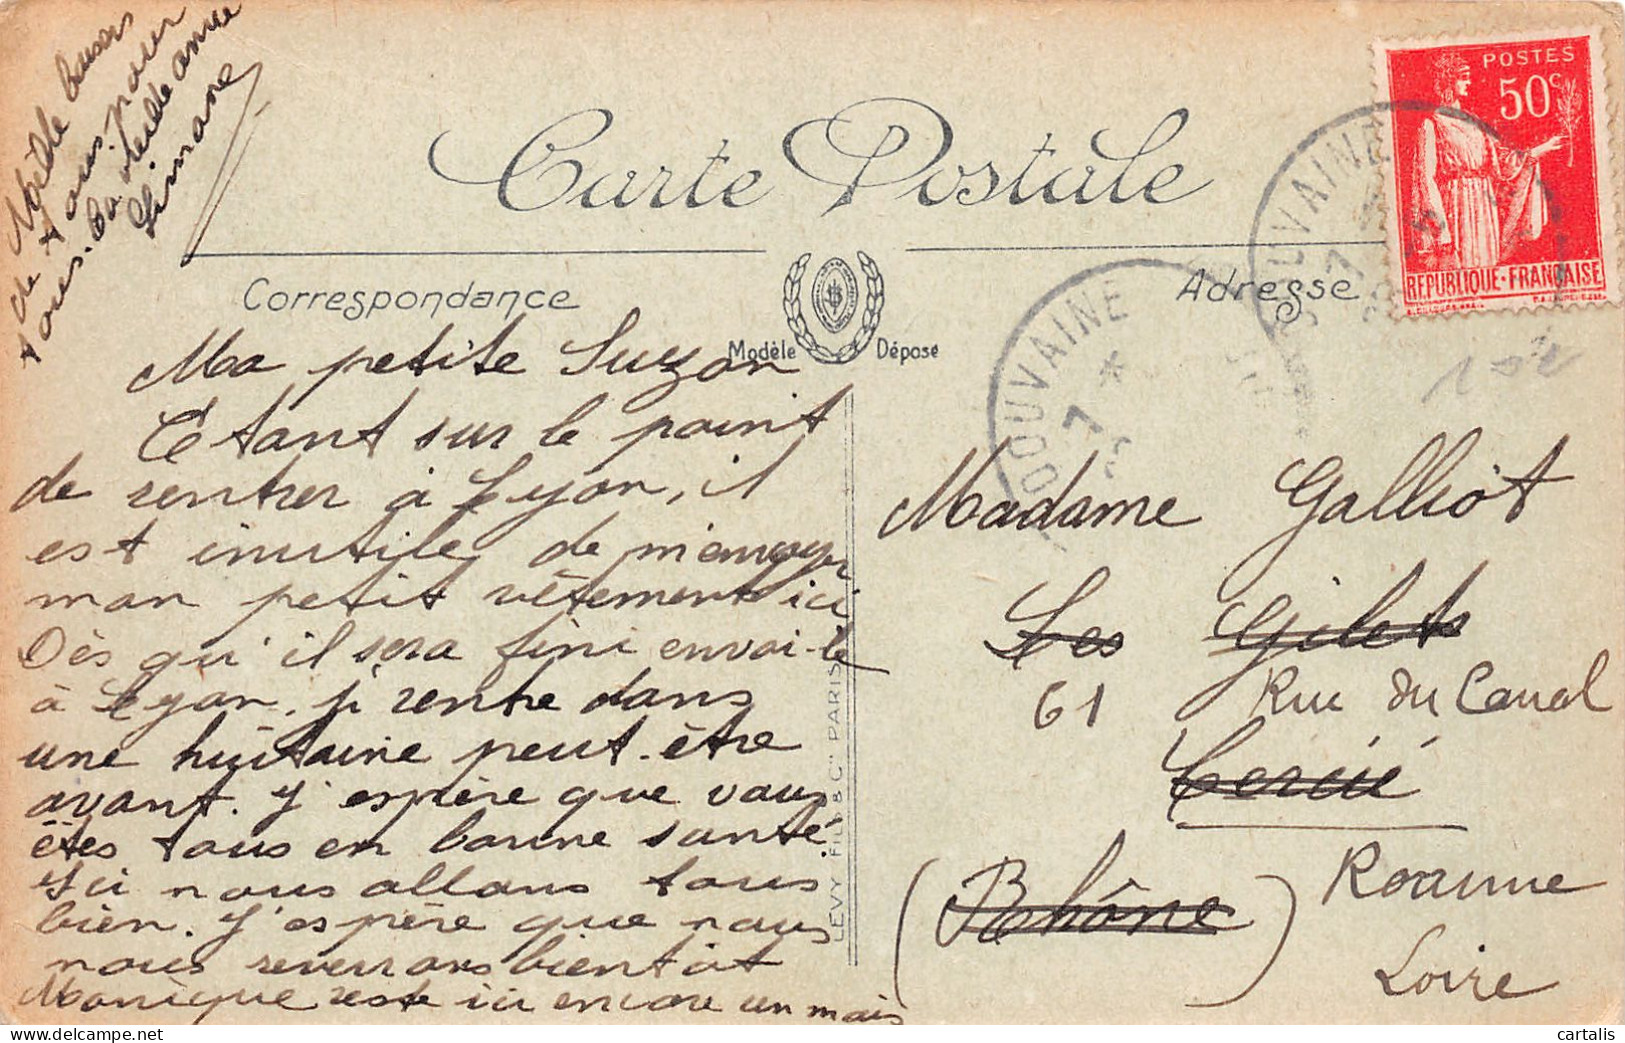 Mille baisers
de tous pour
tous. Ta vieille amie
Simone
Carte Postale
POSTES
50c
REPUBLIQUE-FRANÇAISE
DOUVAINE
7
DOUVAINE
7
Correspondance
Adresse
Modèle Déposé
Ma petite Suzon
Etant sur le point
de rentrer à Lyon, il
est inutile de m'envoyer
mon petit vêtement ici
Dès qu'il sera fini envoi-le
à Lyon, je rentre dans
une huitaine peut-être
avant. J'espère que vous
êtes tous en bonne santé.
Ici nous allons tous
bien. J'espère que nous
nous reverrons bientôt
Monique reste ici encore un mois
LEVY FILS & Cie PARIS
Madame Galliot
Les Gilets
61 Rue du Canal
Cercié
(Rhône)
Roanne
Loire
cartalis